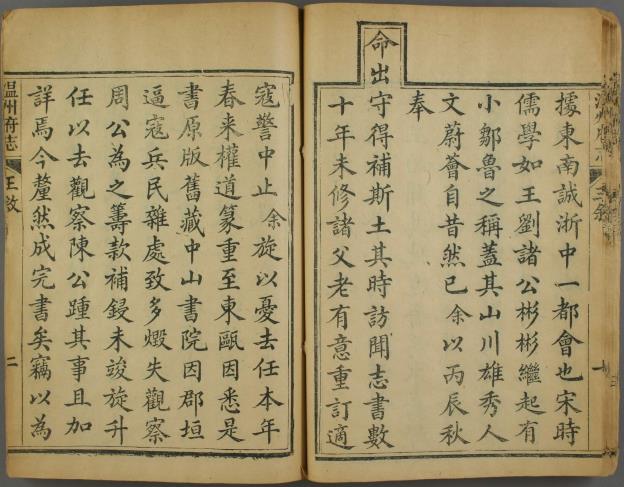 據東南誠浙中一都會也宋時
儒學如王劉諸公彬彬繼起有
小鄒魯之稱蓋其山川雄秀人
文蔚薈自昔然已余以丙辰秋
奉
命出守得補斯土其時訪聞志書數
十年未修諸父老有意重訂適
寇警中止余旋以憂去任本年
春来權道篆重至東甌因悉是
書原版舊藏中山書院因郡垣
逼寇兵民雜處致多燬失觀察
周公為之籌款補鋟未竣旋升
任以去觀察陳公踵其事且加
詳焉今釐然成完書矣竊以為
温州府志
王敘
二